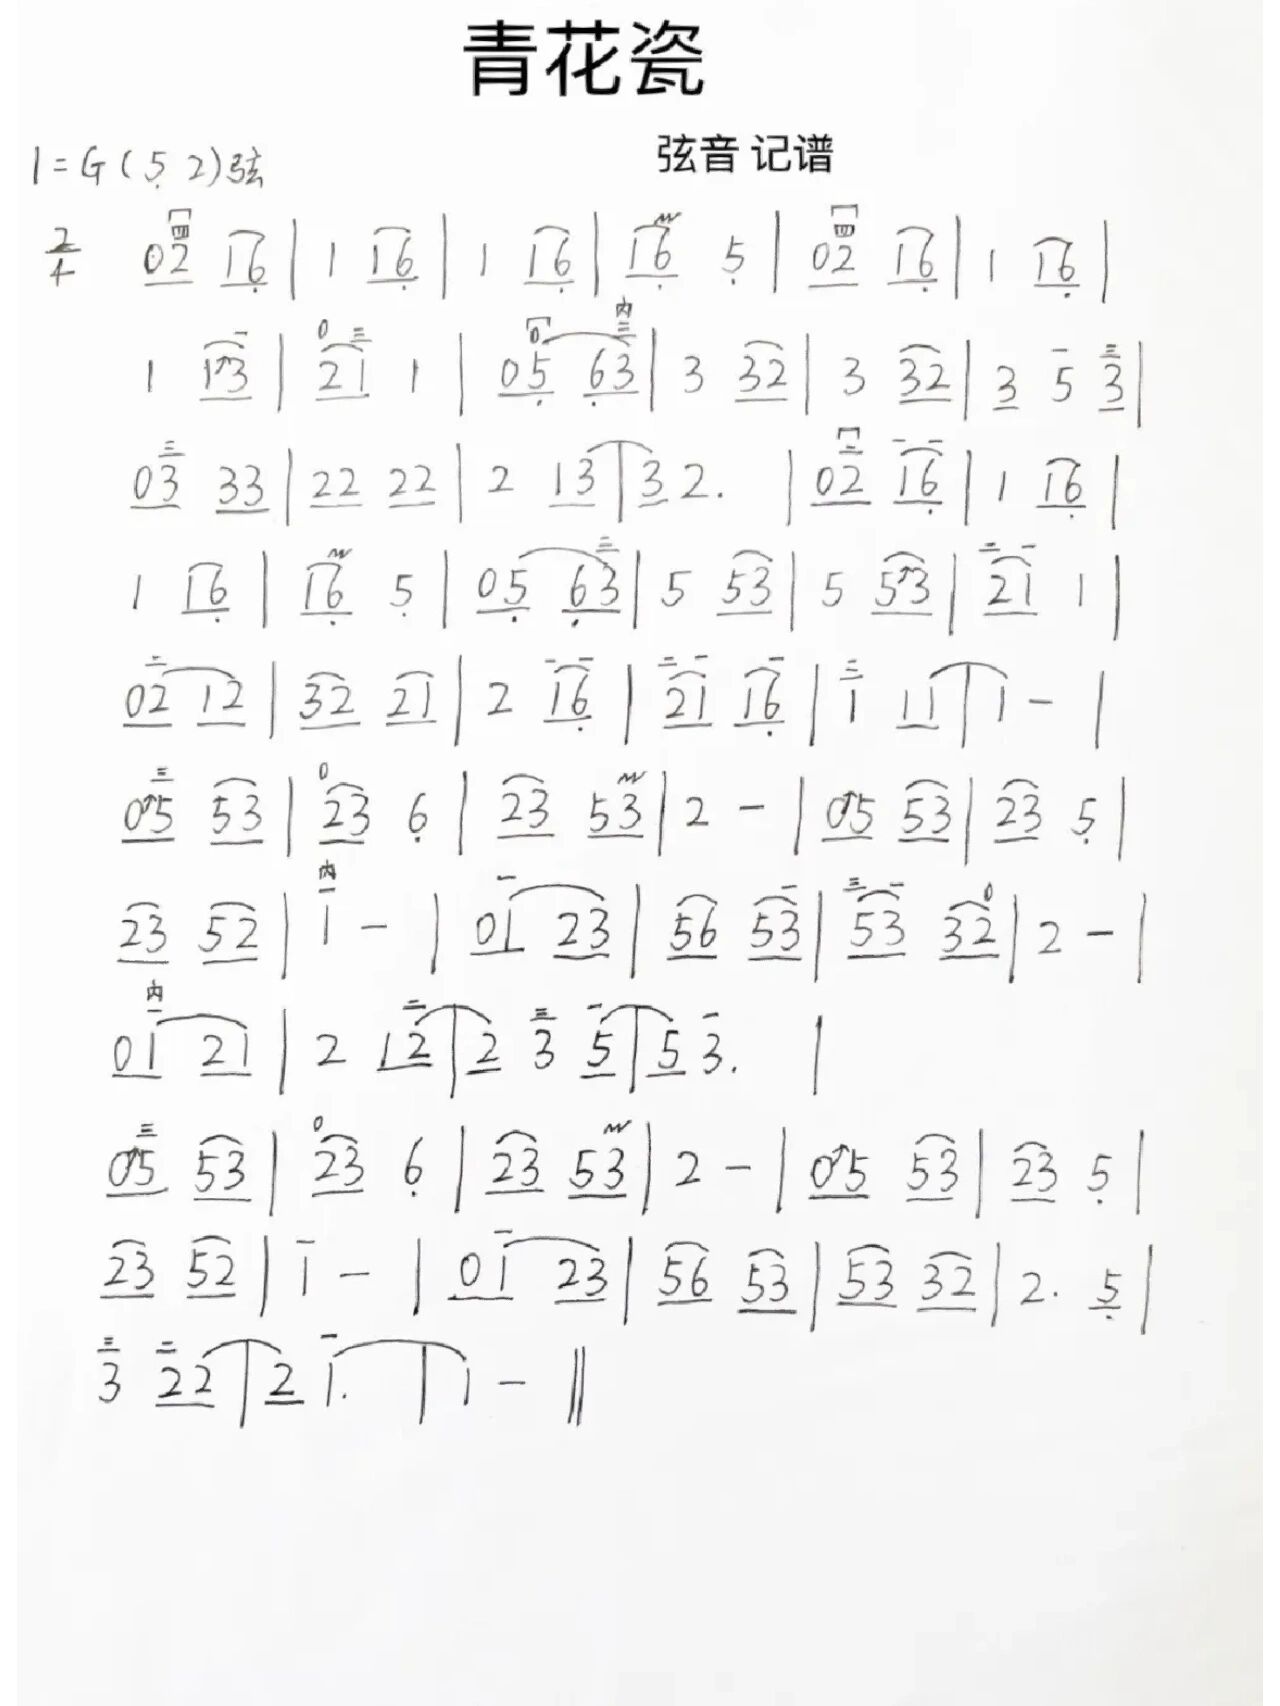 青花瓷
弦音 记谱
1=G(5 2)弦
2/4 02 16 | 1 16 | 1 16 | 16 5 | 02 16 | 1 16 |
1 13 | 21 1 | 05 63 | 3 32 | 3 32 | 3 5 3 |
03 33 | 22 22 | 2 13 | 32. | 02 16 | 1 16 |
1 16 | 16 5 | 05 63 | 5 53 | 5 53 | 21 1 |
02 12 | 32 21 | 2 16 | 21 16 | 1 11 | 1 - |
05 53 | 23 6 | 23 53 | 2 - | 05 53 | 23 5 |
23 52 | 1 - | 01 23 | 56 53 | 53 32 | 2 - |
01 21 | 2 12 | 2 3 5 | 5 3. |
05 53 | 23 6 | 23 53 | 2 - | 05 53 | 23 5 |
23 52 | 1 - | 01 23 | 56 53 | 53 32 | 2. 5 |
3 22 | 2 1. | 1 - ||